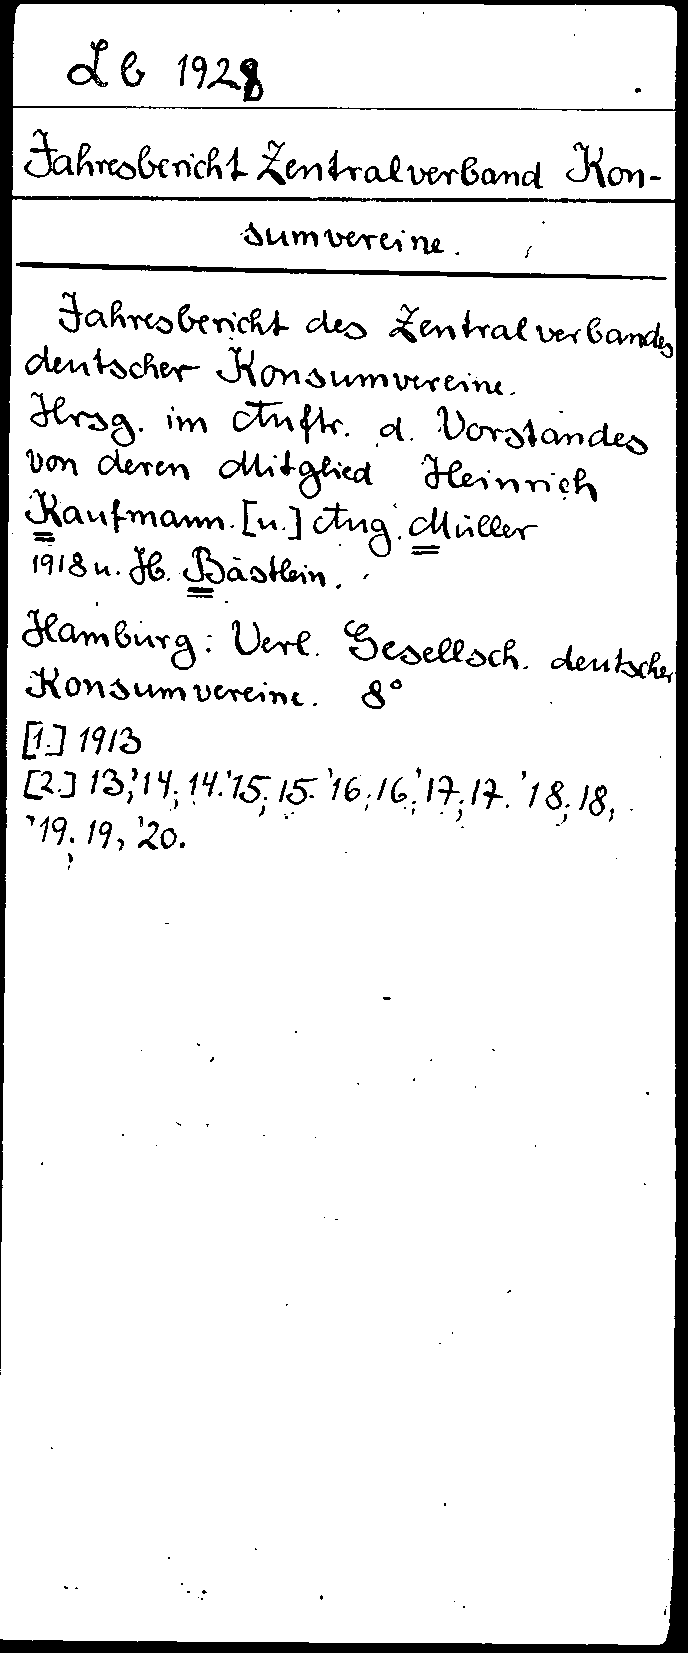 Lb 1928
Jahresbericht Zentralverband Kon-
sumvereine.
Jahresbericht des Zentralverbandes
deutscher Konsumvereine.
Hrsg. im Auftr. d. Vorstandes
von deren Mitglied Heinrich
Kaufmann. [u.] Aug. Müller
1918 u. H. Bästlein.
Hamburg: Verl. Gesellsch. deutscher
Konsumvereine. 8°
[1.] 1913
[2.] 13,'14; 14.'15; 15.'16; 16,'17; 17.'18; 18,
'19; 19, '20.